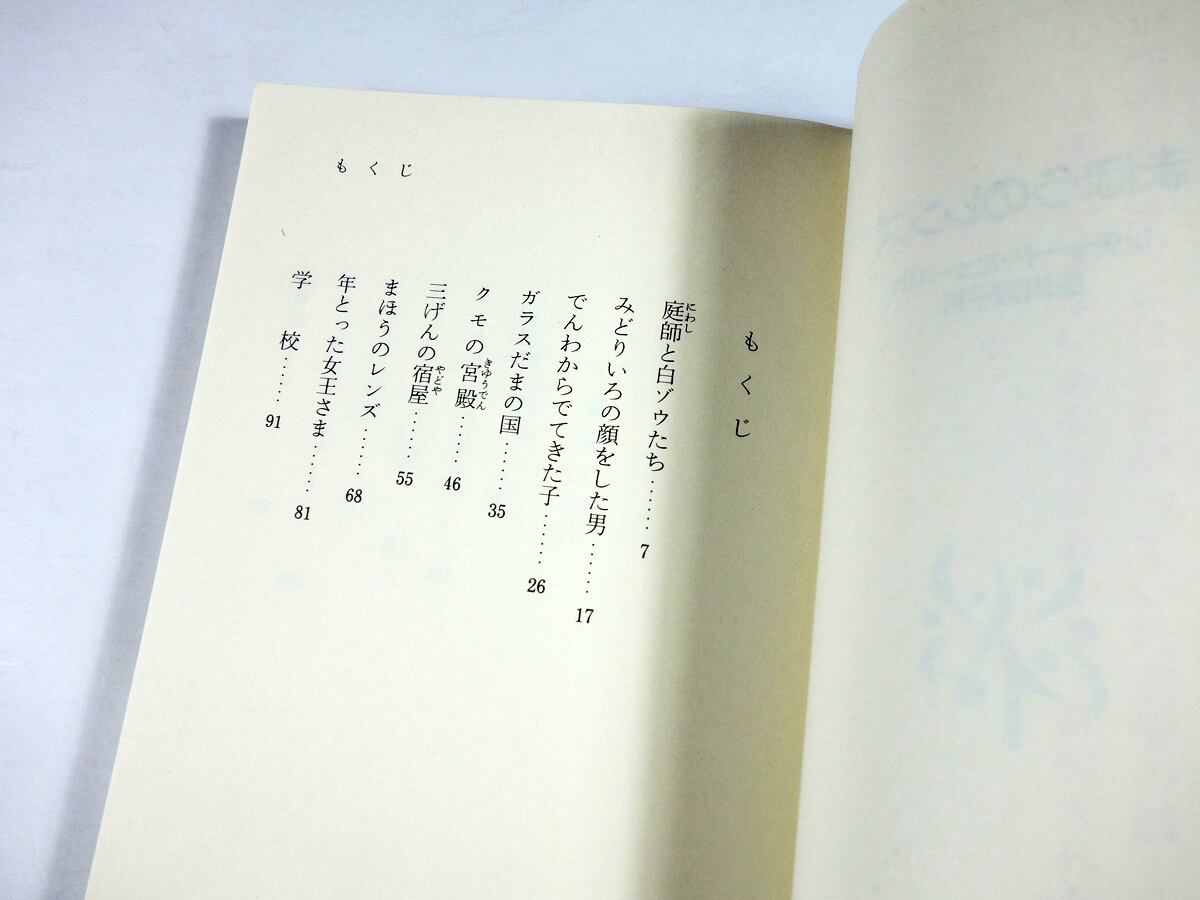 もくじ
もくじ
庭師と白ゾウたち……7
にわし
みどりいろの顔をした男……17
でんわからでてきた子……26
ガラスだまの国……35
クモの宮殿……46
きゆうでん
三げんの宿屋……55
やどや
まほうのレンズ……68
年とった女王さま……81
学校……91
まほうのレンズ